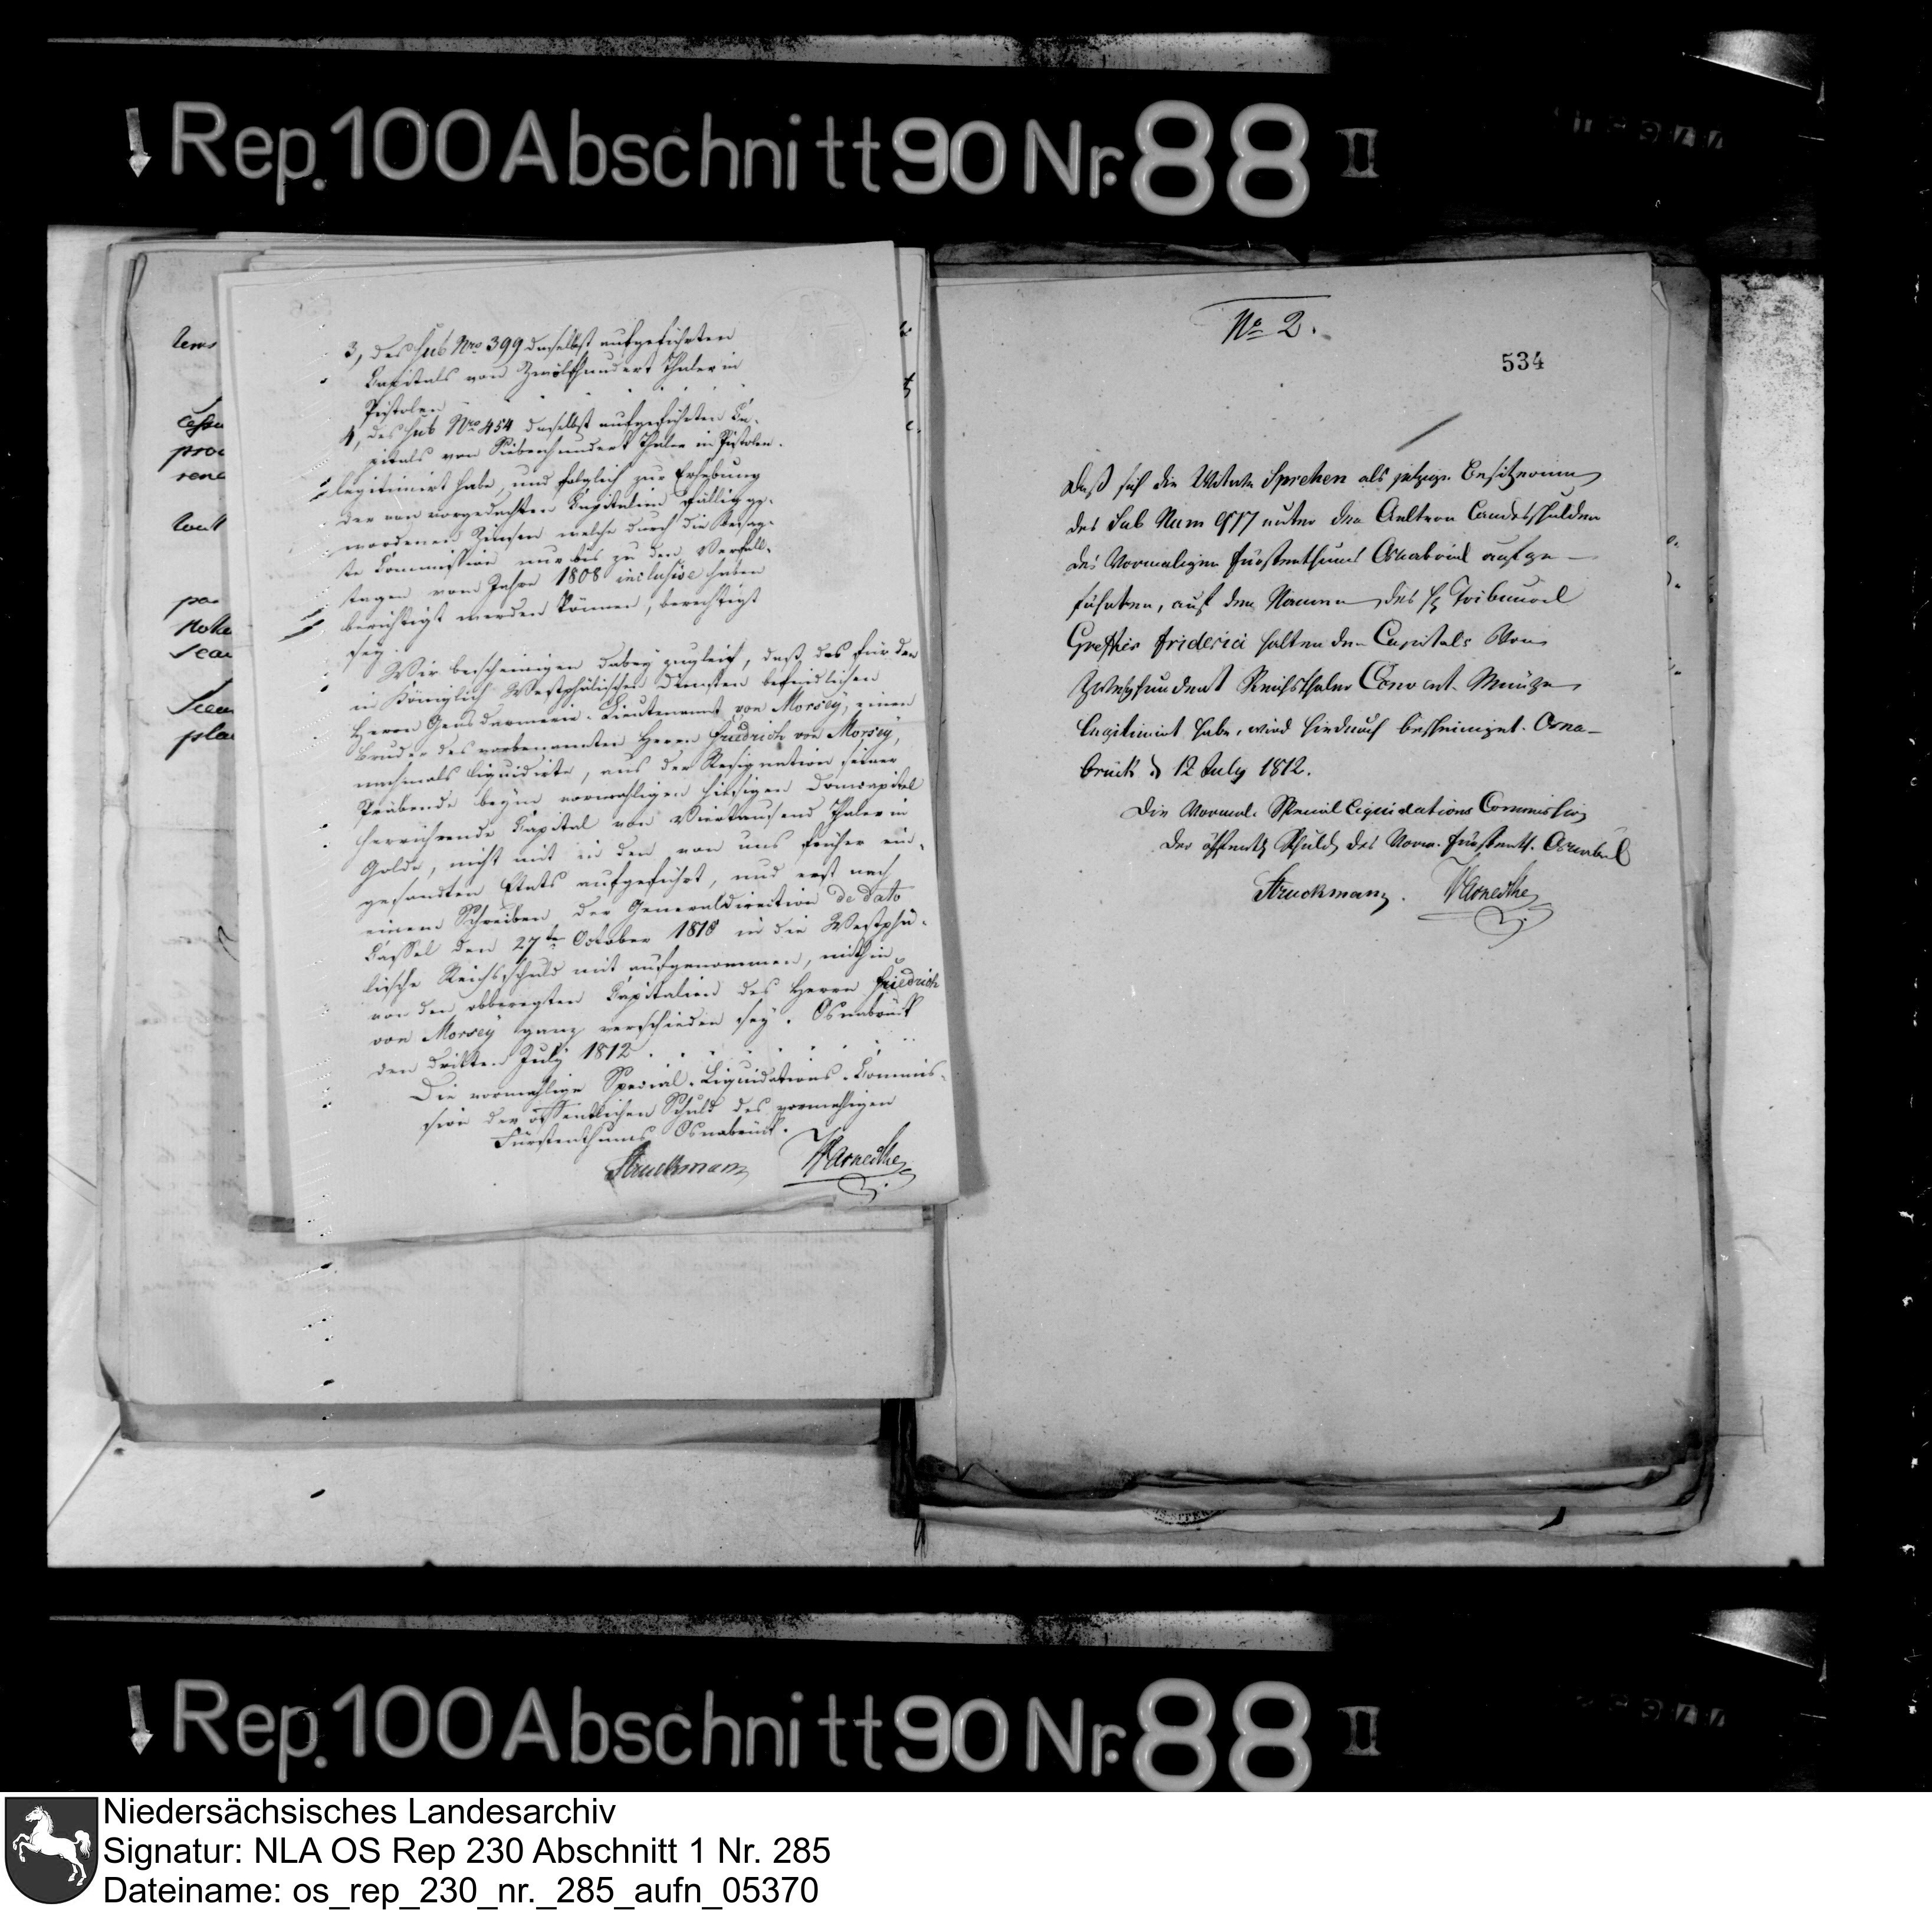 Rep. 100 Abschnitt 90 Nr. 88 II
3, des sub Nro 399 daselbst aufgeführten
Capitals von Zwölfhundert Thaler in
Pistolen
4, des sub Nro 454 daselbst aufgeführten Ca-
pitals von Siebenhundert Thaler in Pistolen.
legitimirt habe, und folglich zur Erhebung
der von vorgedachten Capitalien fällig ge-
wordenen Zinsen welche durch die besag-
te Commission nur bis zu den Verfall-
tagen vom Jahre 1808 inclusive haben
berichtigt werden können, berechtigt
sey.
Wir bescheinigen dabey zugleich, daß das für den
in Königlich Westphälischen Diensten befindlichen
Herrn Gensdarmerie-Lieutenant von Morsey, einen
Bruder des vorbenannten Herrn Friedrich von Morsey,
nachmals liquidirte, aus der Resignation seiner
Präbende beym vormahligen hiesigen Domcapitel
herrührende Capital von Viertausend Thaler in
Golde, nicht mit in den von uns früher ein-
gesandten Etats aufgeführt, und erst nach
einem Schreiben der Generaldirection de dato
Cassel den 27ten October 1810 in die Westphä-
lische Reichsschuld mit aufgenommen, mithin
von den obberegten Capitalien des Herrn Friedrich
von Morsey ganz verschieden sey. Osnabrück
den dritten July 1812.
Die vormahlige Special-Liquidations-Commis-
sion der öffentlichen Schuld des vormahligen
Fürstenthums Osnabrück.
Struckmann Warnecke
No 2.
534
Daß sich die Wittwe Sprehen als jetzige Besitzerinn
des Sub Num 977 unter den Aeltern Landesschulden
des Vormaligen Fürstenthums Osnabrück aufge-
führten, auf den Namen des H. Tribunal
Greffier Friderici haltenden Capitals Von
Zweyhundert Reichsthaler Convent. Münze
Legitimirt habe, wird hiedurch bescheiniget. Osna-
brück d 12 July 1812.
Die Vormal. Special Liquidations Commission
der öffentl. Schuld des Vorm. Fürstenth. Osnabrück
Struckmann. Warnecke
Rep. 100 Abschnitt 90 Nr. 88 II
Niedersächsisches Landesarchiv
Signatur: NLA OS Rep 230 Abschnitt 1 Nr. 285
Dateiname: os_rep_230_nr._285_aufn_05370